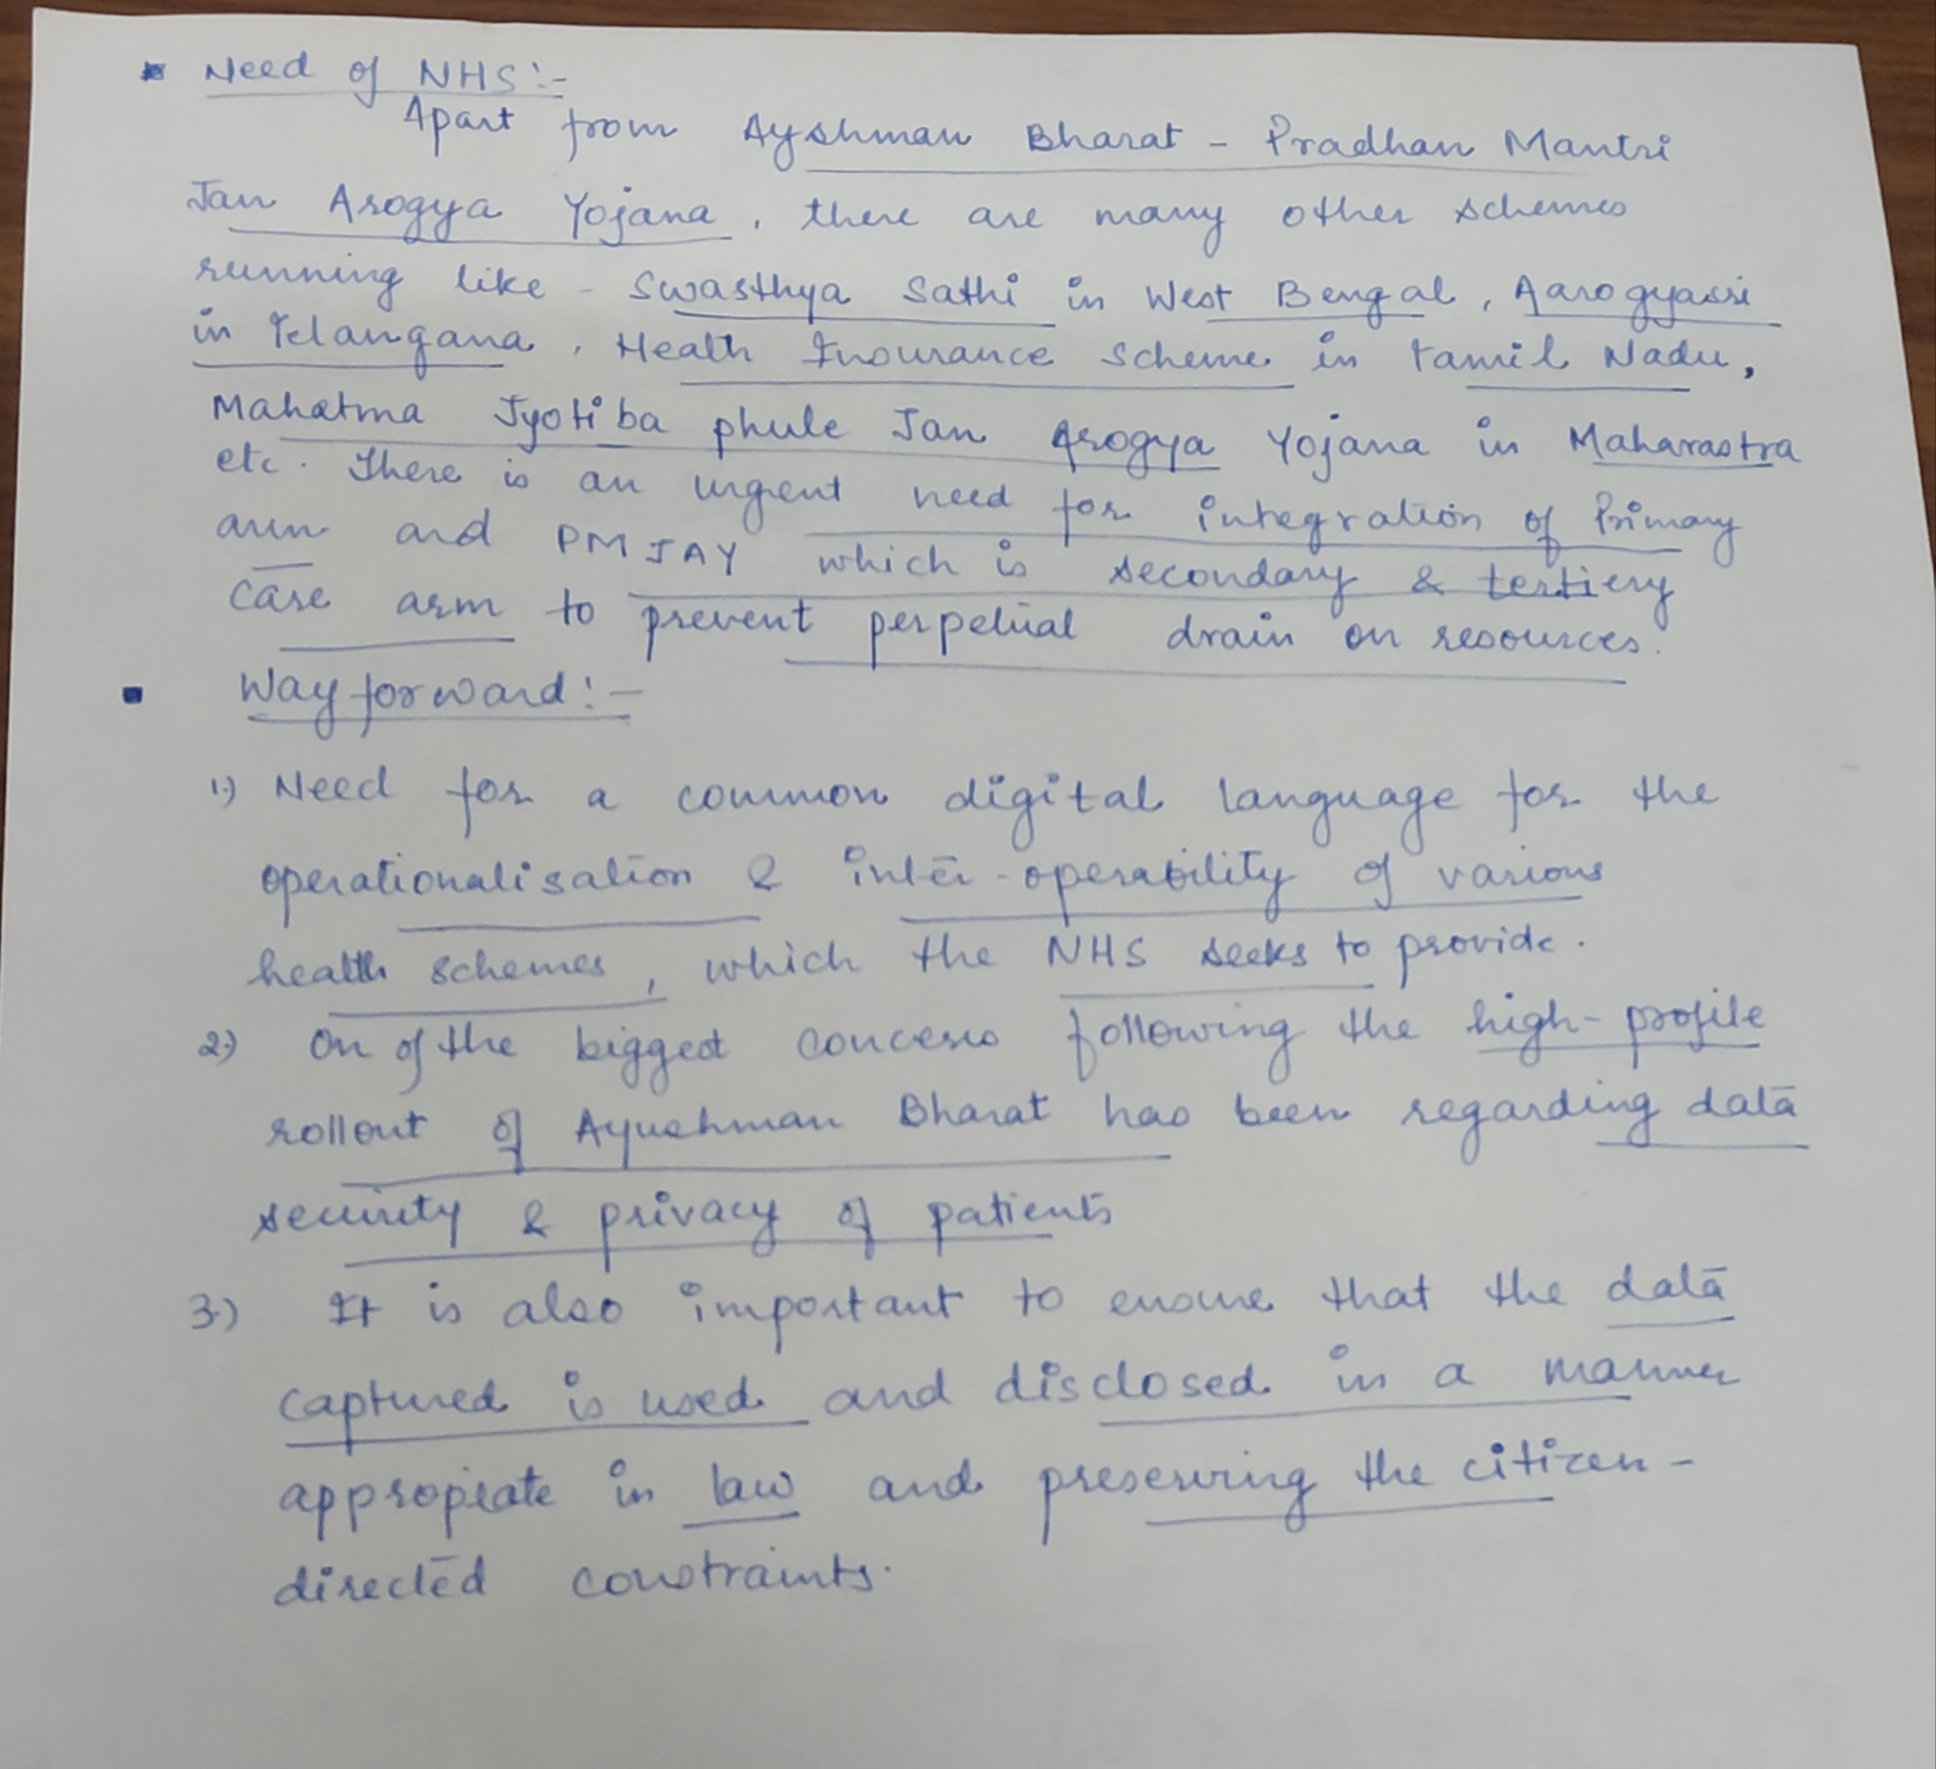 Need of NHS :-
Apart from Ayshman Bharat - Pradhan Mantri
Jan Arogya Yojana, there are many other schemes
running like - Swasthya Sathi in West Bengal, Aarogyasri
in Telangana, Health Insurance Scheme in Tamil Nadu,
Mahatma Jyotiba phule Jan Arogya Yojana in Maharastra
etc. There is an urgent need for integration of Primary
arm and PMJAY which is secondary & tertiery
care arm to prevent perpetual drain on resources.
Way forward :-
1.) Need for a common digital language for the
operationalisation & inter-operability of various
health schemes, which the NHS seeks to provide.
2.) On of the biggest concerns following the high-profile
rollout of Ayushman Bharat has been regarding data
security & privacy of patients
3.) It is also important to ensure that the data
captured is used and disclosed in a manner
appropiate in law and preserving the citizen-
directed constraints.